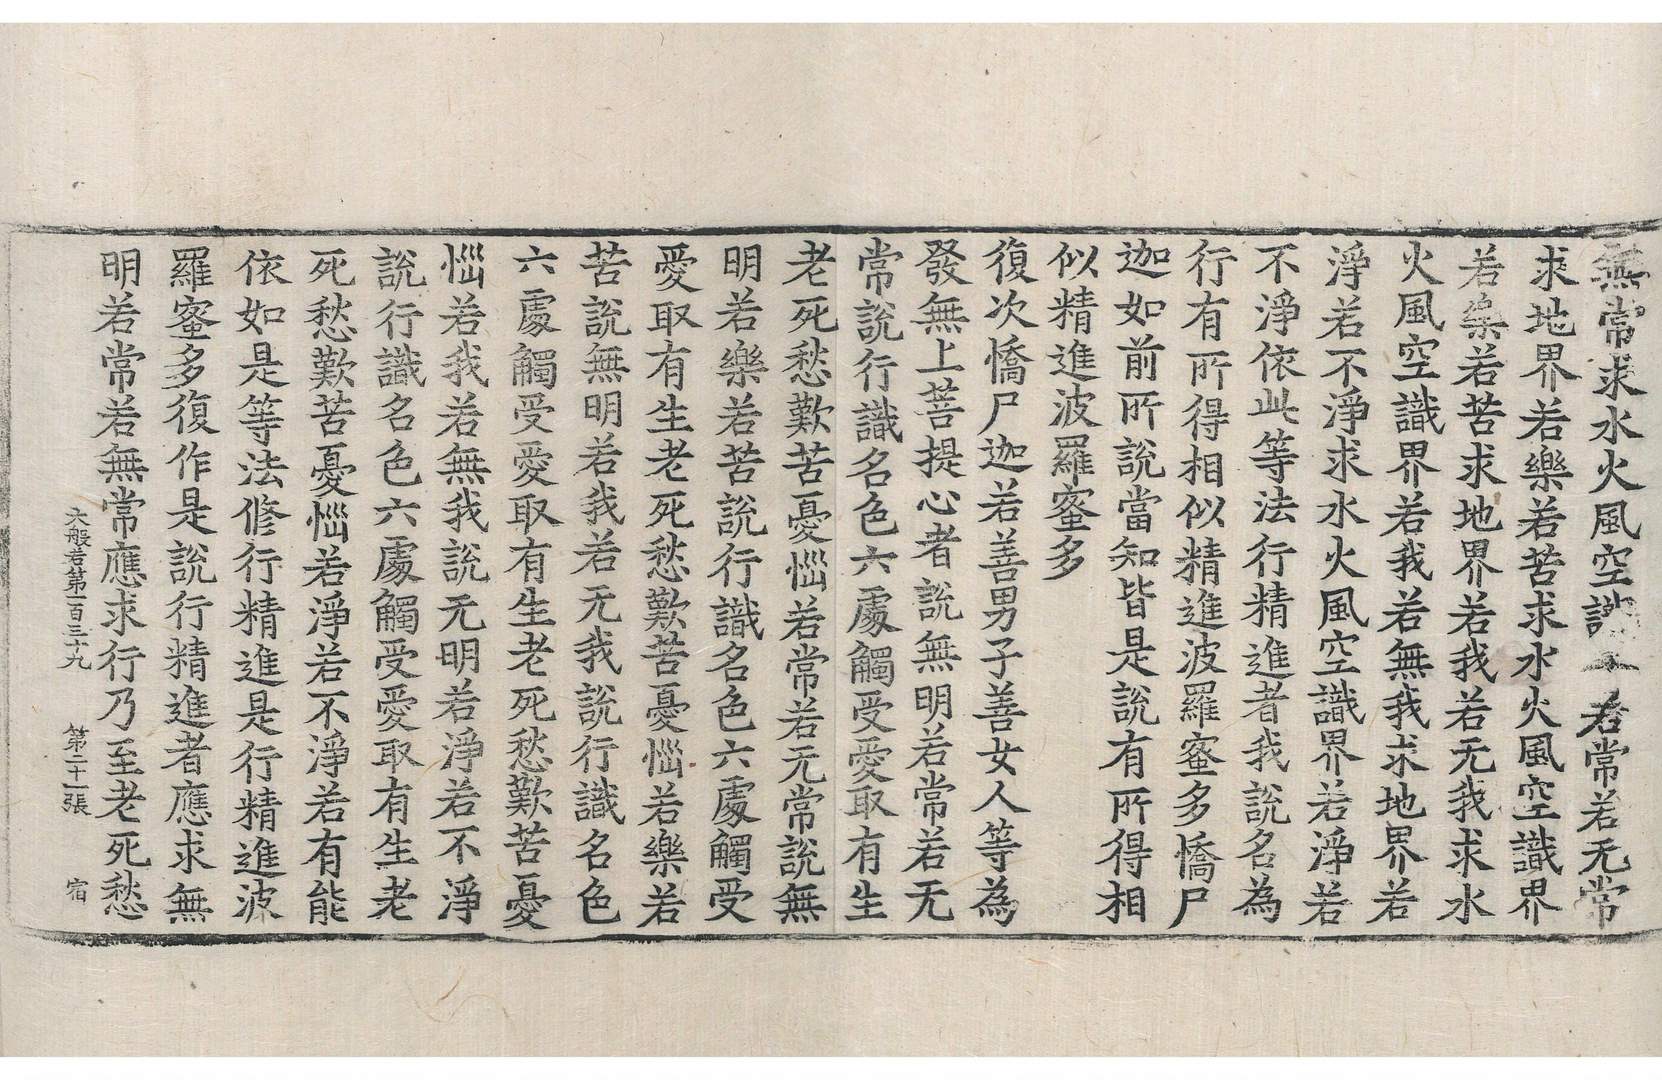 無常求水火風空識界若常若无常
求地界若樂若苦求水火風空識界
若樂若苦求地界若我若无我求水
火風空識界若我若無我求地界若
淨若不淨求水火風空識界若淨若
不淨依此等法行精進者我說名為
行有所得相似精進波羅蜜多憍尸
迦如前所說當知皆是說有所得相
似精進波羅蜜多
復次憍尸迦若善男子善女人等為
發無上菩提心者說無明若常若无
常說行識名色六處觸受愛取有生
老死愁歎苦憂惱若常若无常說無
明若樂若苦說行識名色六處觸受
愛取有生老死愁歎苦憂惱若樂若
苦說無明若我若无我說行識名色
六處觸受愛取有生老死愁歎苦憂
惱若我若無我說无明若淨若不淨
說行識名色六處觸受愛取有生老
死愁歎苦憂惱若淨若不淨若有能
依如是等法修行精進是行精進波
羅蜜多復作是說行精進者應求無
明若常若無常應求行乃至老死愁
大般若第一百三十九　第二十一張　宿